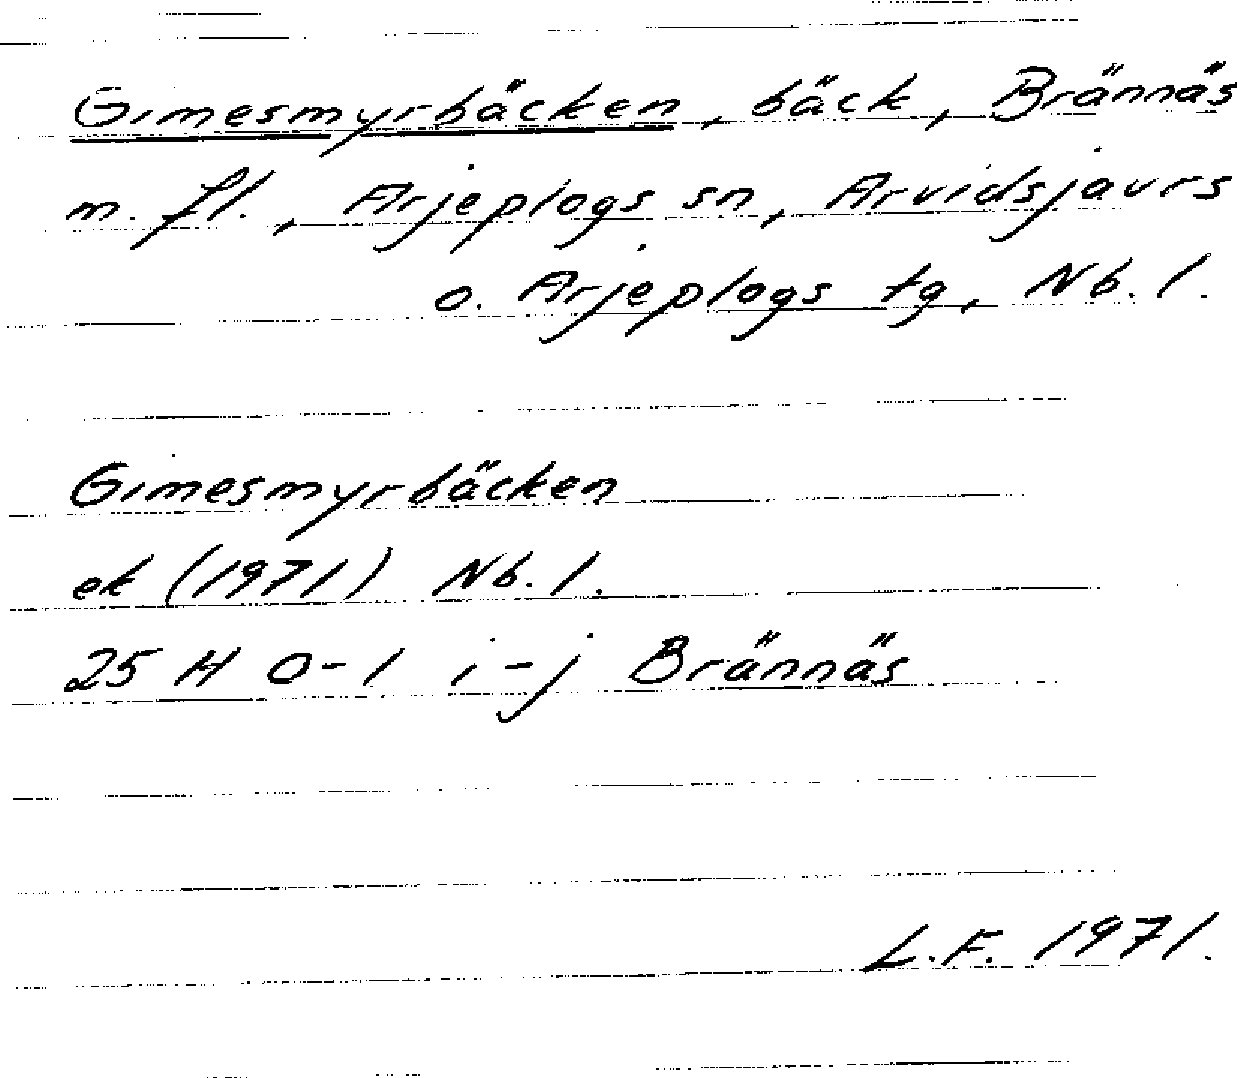 Gimesmyrbäcken, bäck, Brännäs
m. fl., Arjeplogs sn, Arvidsjaurs
o. Arjeplogs tg, Nb. l.
Gimesmyrbäcken
ek (1971) Nb. l.
25 H 0-1 i-j Brännäs
L.F. 1971.